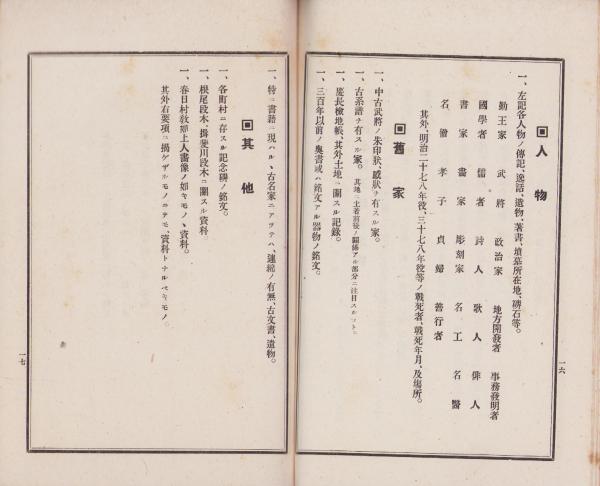 ▣人物
一、左記各人物ノ傳記、逸話、遺物、著書、墳墓所在地、碑石等。
勤王家 武將 政治家 地方開發者 事務發明者
國學者 儒者 詩人 歌人 俳人
書家 畫家 彫刻家 名工 名醫
名僧 孝子 貞婦 善行者
其外、明治二十七八年役、三十七八年役等ノ戰死者、戰死年月、及塲所。
▣舊家
一、中古武將ノ朱印狀、感狀ヲ有スル家。
一、古系譜ヲ有スル家。其地ニ土著前後ノ關係アル部分ニ注目スルコト
一、慶長檢地帳、其外土地ニ關スル記錄。
一、三百年以前ノ奥書或ハ銘文アル器物ノ銘文。
一六
一、特ニ書籍ニ現ハルヽ古名家ニアツテハ、連綿ノ有無、古文書、遺物。
▣其他
一、各町村ニ存スル記念碑ノ銘文。
一、根尾段木、揖斐川段木ニ關スル資料
一、春日村敎如上人畫像ノ如キモノヽ資料。
其外右要項ニ揭ゲザルモノニテモ、資料トナルベキモノ。
一七